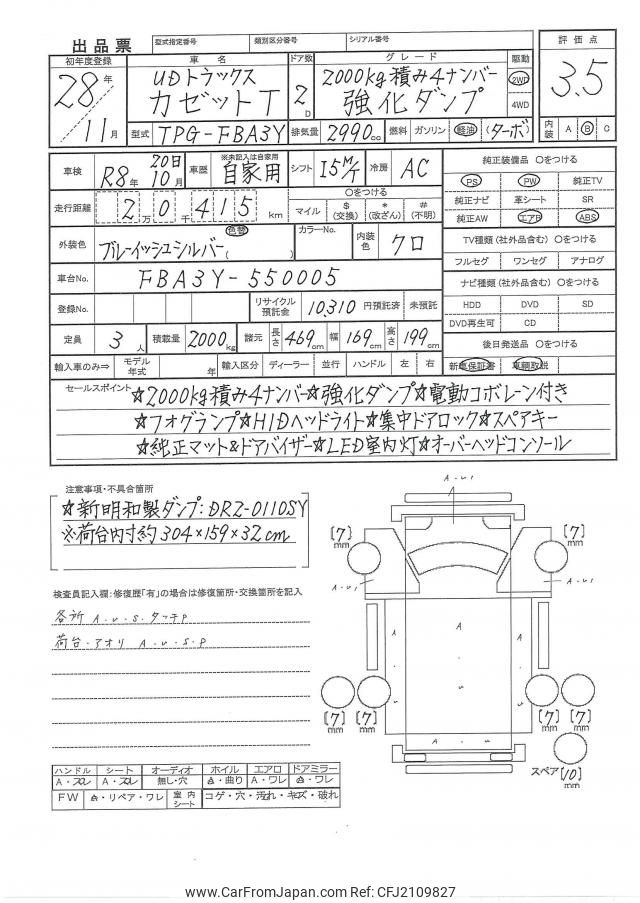 出品票
型式指定番号 類別区分番号 シリアル番号
初年度登録 車名 ドア数 グレード 駆動 評価点
28年 11月
UDトラックス
カゼットT
2D
2000kg積み4ナンバー
強化ダンプ
2WD
4WD
3.5
型式 TPG-FBA3Y 排気量 2990cc 燃料 ガソリン 軽油 (ターボ) 内装 A B C
車検 R8年 20日 10月 車歴 ※未記入は自家用 自家用 シフト 15 M/T 冷房 AC
純正装備品 ○をつける
PS PW 純正TV
純正ナビ 革シート SR
純正AW エアB ABS
走行距離 2万0千415km
○をつける
マイル $(交換) *(改ざん) #(不明)
TV種類(社外品含む) ○をつける
フルセグ ワンセグ アナログ
外装色 ブルーイッシュシルバー 色替( ) カラーNo. 内装色 クロ
ナビ種類(社外品含む) ○をつける
車台No. FBA3Y-550005
HDD DVD SD
DVD再生可 CD
登録No. リサイクル預託金 10,310 円預託済 未預託
後日発送品 ○をつける
定員 3人 積載量 2000kg 諸元 長さ 469cm 幅 169cm 高さ 199cm
新車保証書 車輌取説
輸入車のみ⇒ モデル年式 年 輸入区分 ディーラー 並行 ハンドル 左 右
セールスポイント
☆2000kg積み4ナンバー☆強化ダンプ☆電動コボレーン付き
☆フォグランプ☆HIDヘッドライト☆集中ドアロック☆スペアキー
☆純正マット&ドアバイザー☆LED室内灯☆オーバーヘッドコンソール
注意事項・不具合箇所
☆新明和製ダンプ:DRZ-0110SY
※荷台内寸約304×159×32cm
検査員記入欄:修復歴「有」の場合は修復箇所・交換箇所を記入
各所 A.U.S.タッチP
荷台.アオリ A.U.S.P
A.U1
A
[7]mm [7]mm
A.U1 A.U1
A A A
S S S
[7]mm [7]mm [7]mm [7]mm
A.U
スペア [10]mm
ハンドル シート オーディオ ホイル エアロ ドアミラー
A・スレ A・スレ 無し・穴 A・曲り A・ワレ A・ワレ
FW A・リペア・ワレ 室内シート コゲ・穴・汚れ・キズ・破れ
www.CarFromJapan.com Ref: CFJ2109827